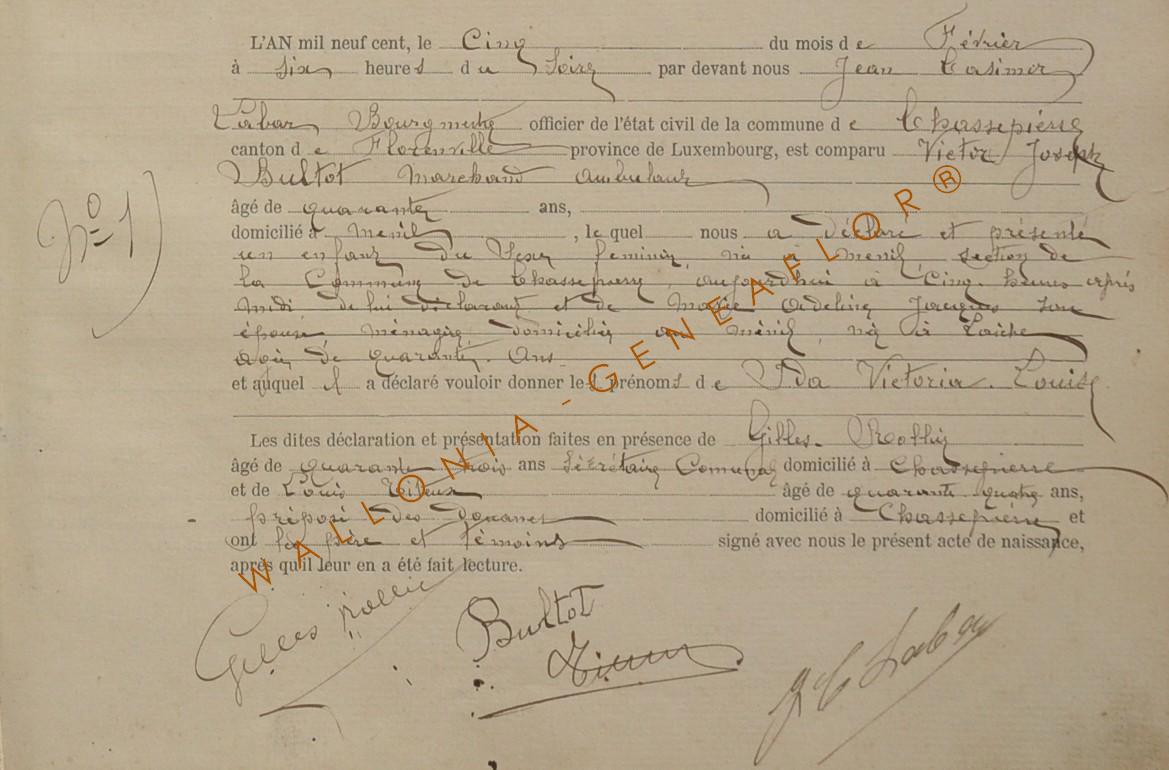 L'AN mil neuf cent, le Cinq du mois de Février
à six heures du Soir par devant nous Jean Casimir
Labar, Bourgmestre officier de l'état civil de la commune de Chassepierre
canton de Florenville province de Luxembourg, est comparu Victor Joseph
Bultot Marchand ambulant
N° 1)
âgé de quarante ans,
domicilié à Menil, lequel nous a déclaré et présenté
un enfant du Sexe feminin, né à menil, section de
la Commune de Chassepierre, aujourdhui à Cinq heures après
midi de lui déclarant et de Marie Adeline Jacques son
épouse ménagère domiciliée au ménil, née à Laiche
agée de quarante. Ans
et auquel il a déclaré vouloir donner les prénoms de Ida Victoria. Louise
Les dites déclaration et présentation faites en présence de Gilles
âgé de quarante trois ans Secrétaire Comunal domicilié à Chassepierre
et de Louis âgé de quarante quatre ans,
préposé des Douanes domicilié à Chassepierre et
ont le père et témoins signé avec nous le présent acte de naissance,
après qu'il leur en a été fait lecture.
Gilles
Bultot
J C Labar
WALLONIA - GENEAFLOR®